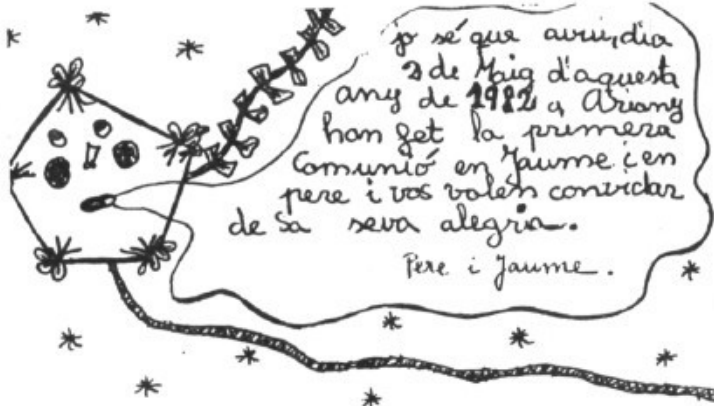 jo sé que avui, dia
2 de Maig d'aquesta
any de 1982 a Ariany
han fet la primera
Comunió en Jaume i en
pere i vos volen convidar
de sa seva alegria.
Pere i Jaume.